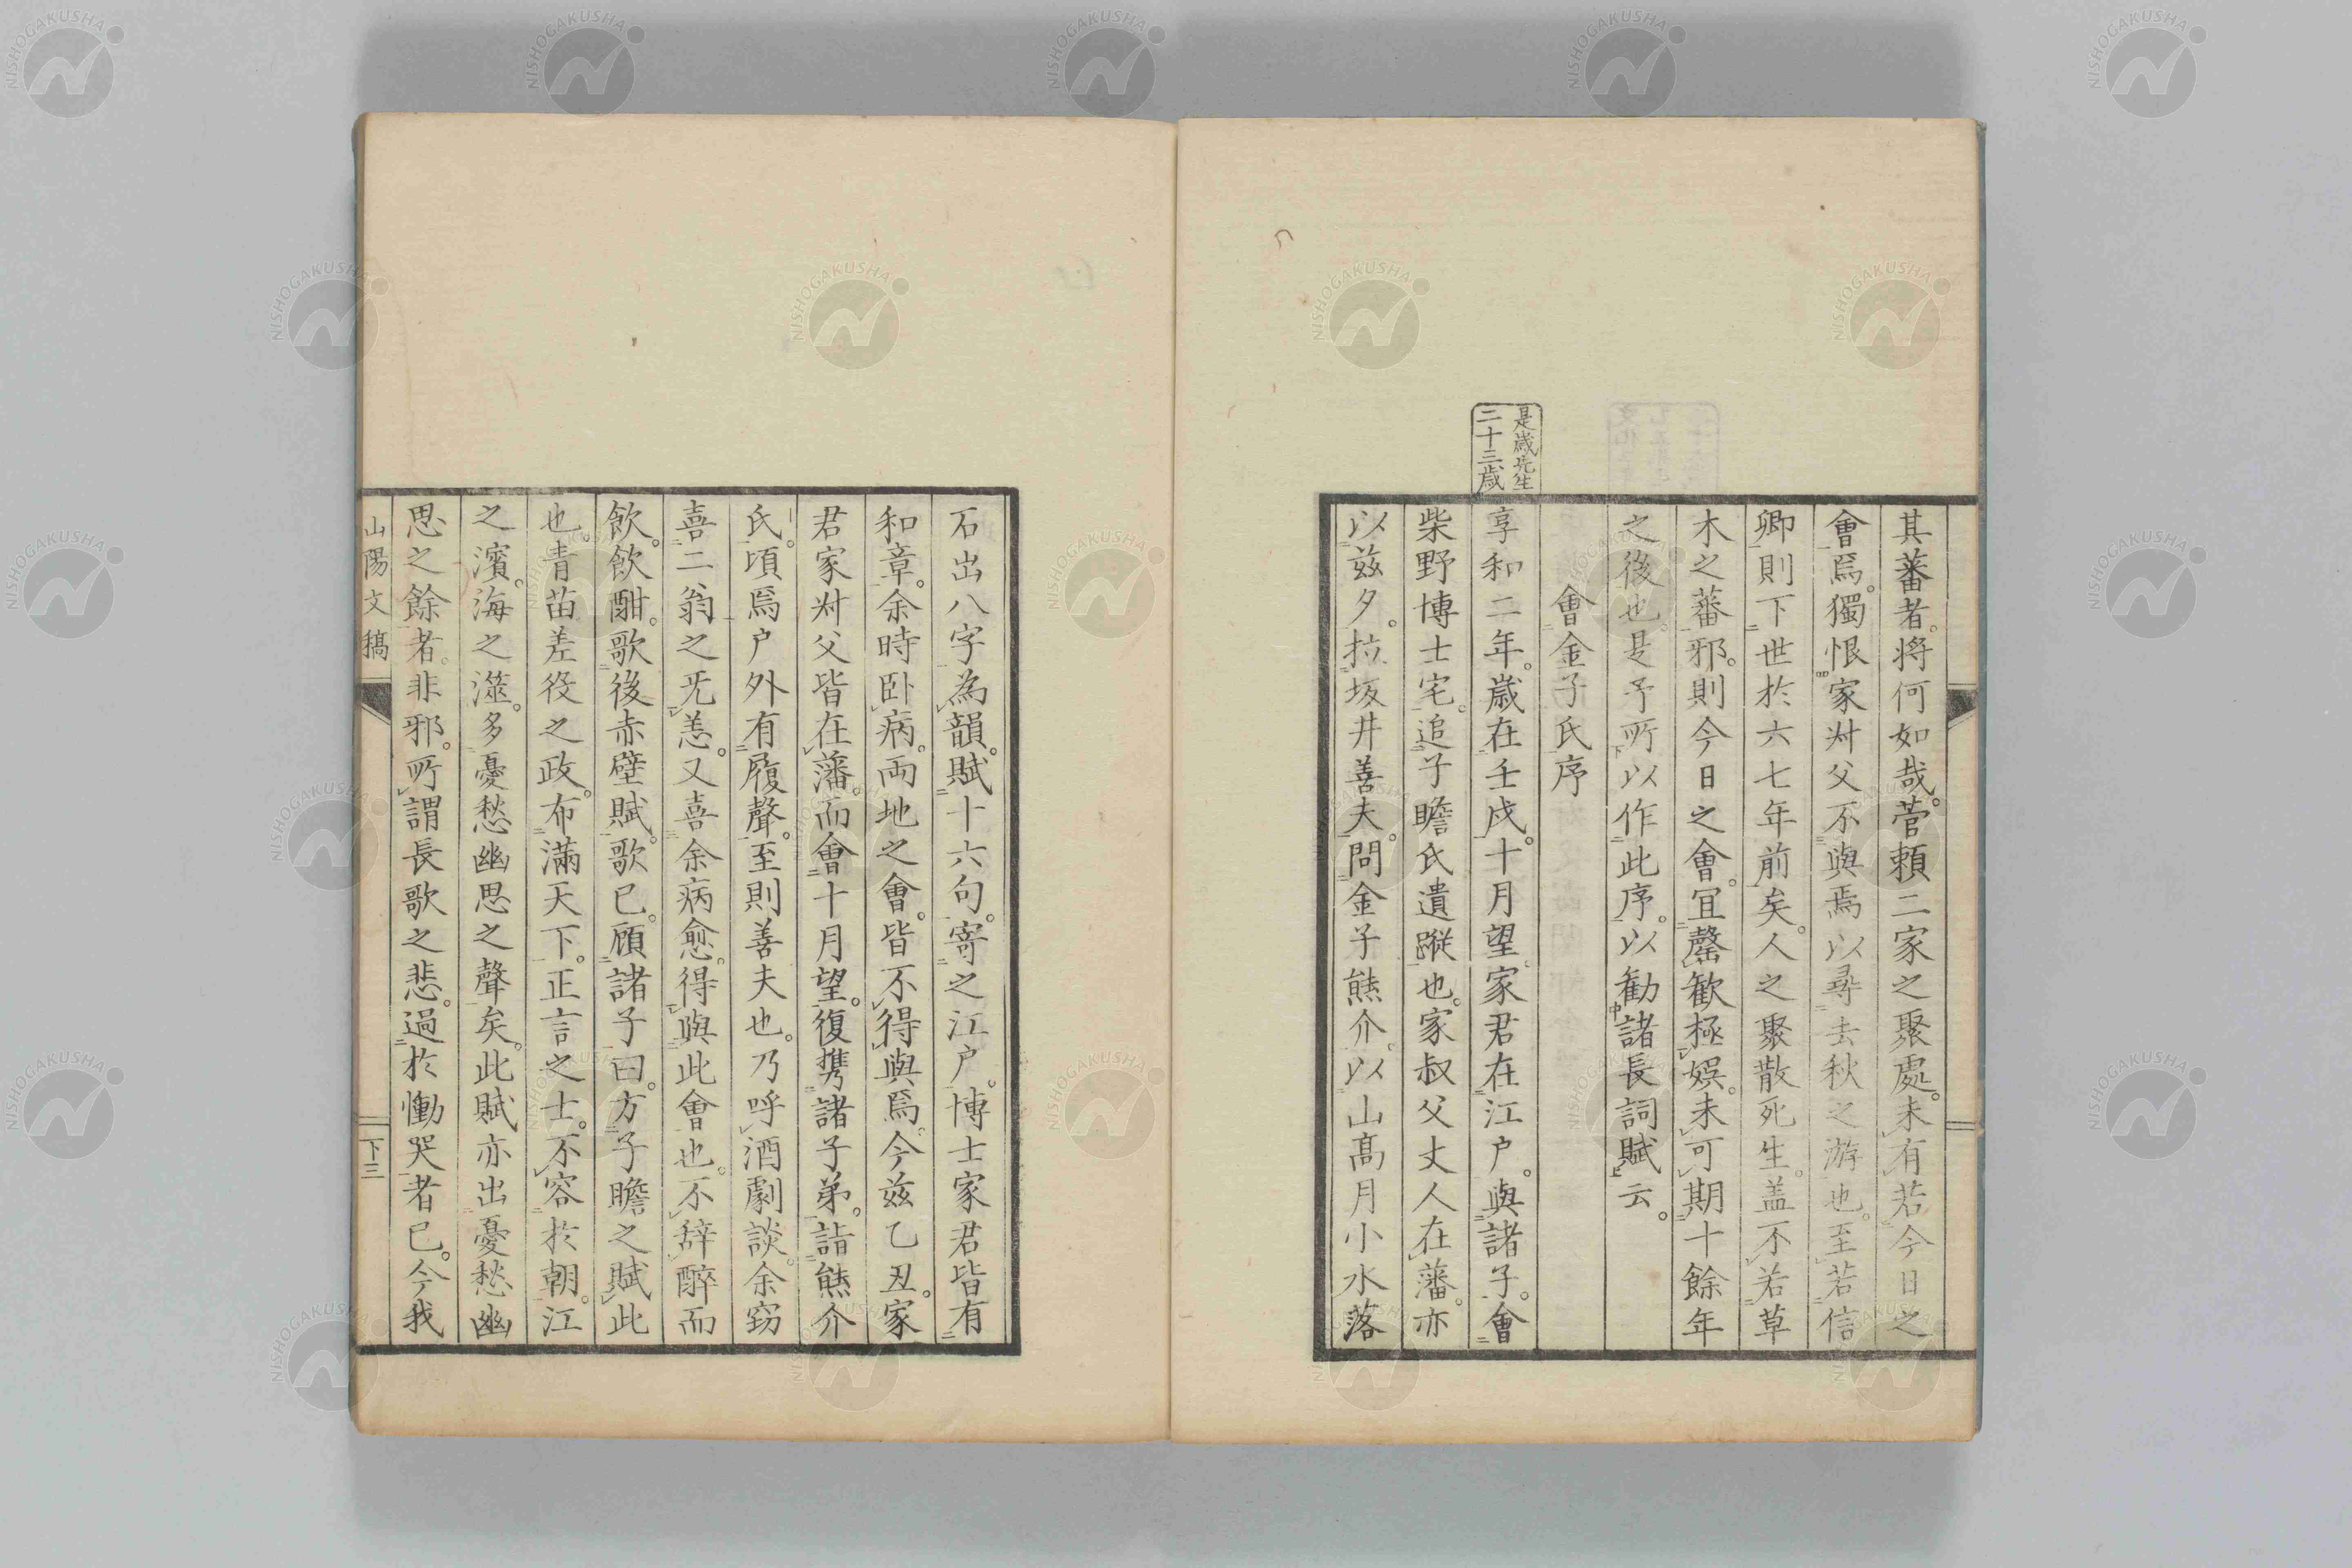 其蕃者。將何如哉。菅賴二家之聚處。未有若今日之
會焉。獨恨家叔父不與焉以尋去秋之游也。至若信
卿則下世於六七年前矣。人之聚散死生。盖不若草
木之蕃邪。則今日之會。宜罄歡極娯。未可期十餘年
之後也。是予所以作此序。以勸諸長詞賦云。
會金子氏序
是歲先生
二十三歲
享和二年。歲在壬戌。十月望。家君在江户。與諸子。會
柴野博士宅。追子瞻氏遺蹤也。家叔父丈人在藩。亦
以兹夕。拉坂井善夫。問金子熊介。以山高月小水落
石出八字為韻。賦十六句。寄之江户。博士家君皆有
和章。余時卧病。両地之會。皆不得與焉。今兹乙丑。家
君家叔父皆在藩。而會十月望。復携諸子弟。詣熊介
氏。頃焉户外有履聲。至則善夫也。乃呼酒劇談。余窃
喜二翁之旡恙。又喜余病愈。得與此會也。不辞醉而
飲。飲酣。歌後赤壁賦。歌已。顧諸子曰。方子瞻之賦此
也。青苗差役之政。布滿天下。正言之士。不容於朝。江
之濱。海之澨。多憂愁幽思之聲矣。此賦亦出憂愁幽
思之餘者。非邪。所謂長歌之悲。過於慟哭者已。今我
山陽文稿
下三
NISHOGAKUSHA